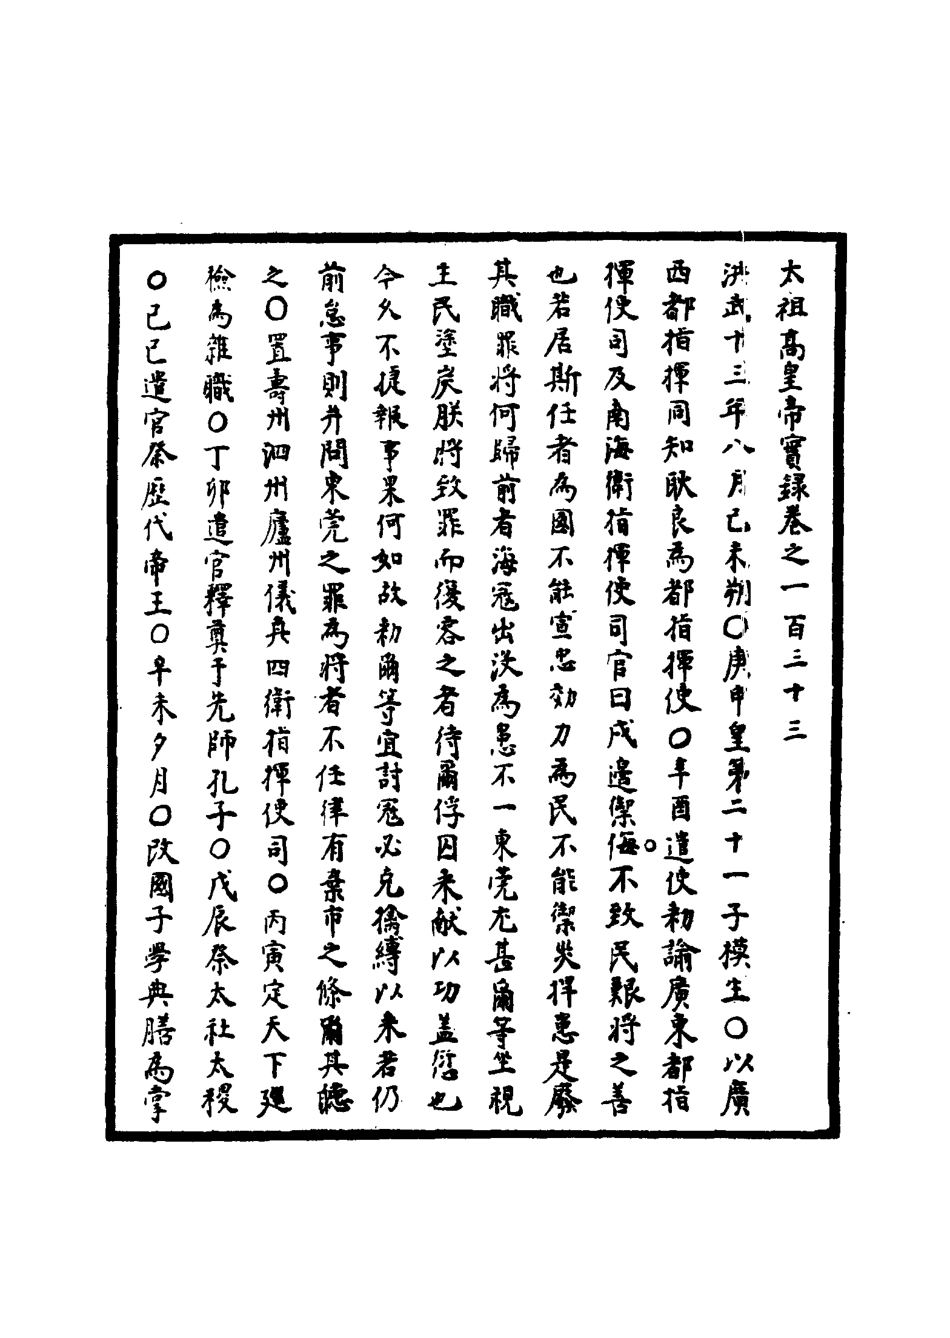 太祖高皇帝實録卷之一百三十三
洪武十三年八月己未朔○庚申皇第二十一子模生○以廣
西都指揮同知耿良為都指揮使○辛酉遣使勑諭廣東都指
揮使司及南海衛指揮使司官曰戍邊禦侮不致民艱將之善
也若居斯任者為國不能宣忠効力為民不能禦災捍患是廢
其職罪將何歸前者海冦出沒為患不一東莞尤甚爾等坐視
生民塗炭朕將致罪而復容之者待爾俘囚來献以功盖愆也
今久不捷報事果何如故勑爾等宜討冦必克擒縛以來若仍
前怠事則并問東莞之罪為將者不任律有棄市之條爾其聴
之○置壽州泗州廬州儀真四衛指揮使司○丙寅定天下廵
檢為雜職○丁卯遣官釋奠于先師孔子○戊辰祭太社太稷
○己巳遣官祭歷代帝王○辛未夕月○改國子學典膳為掌